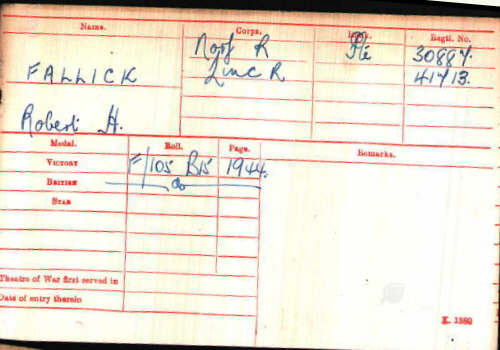 Name. Corps. Rank. Regtl. No.
Norf R Pte 30887.
FALLICK Linc R 41713.
Robert H.
Medal. Roll. Page. Remarks.
VICTORY F/105 B15 1944.
BRITISH do
STAR
Theatre of War first served in
Date of entry therein
K. 1380